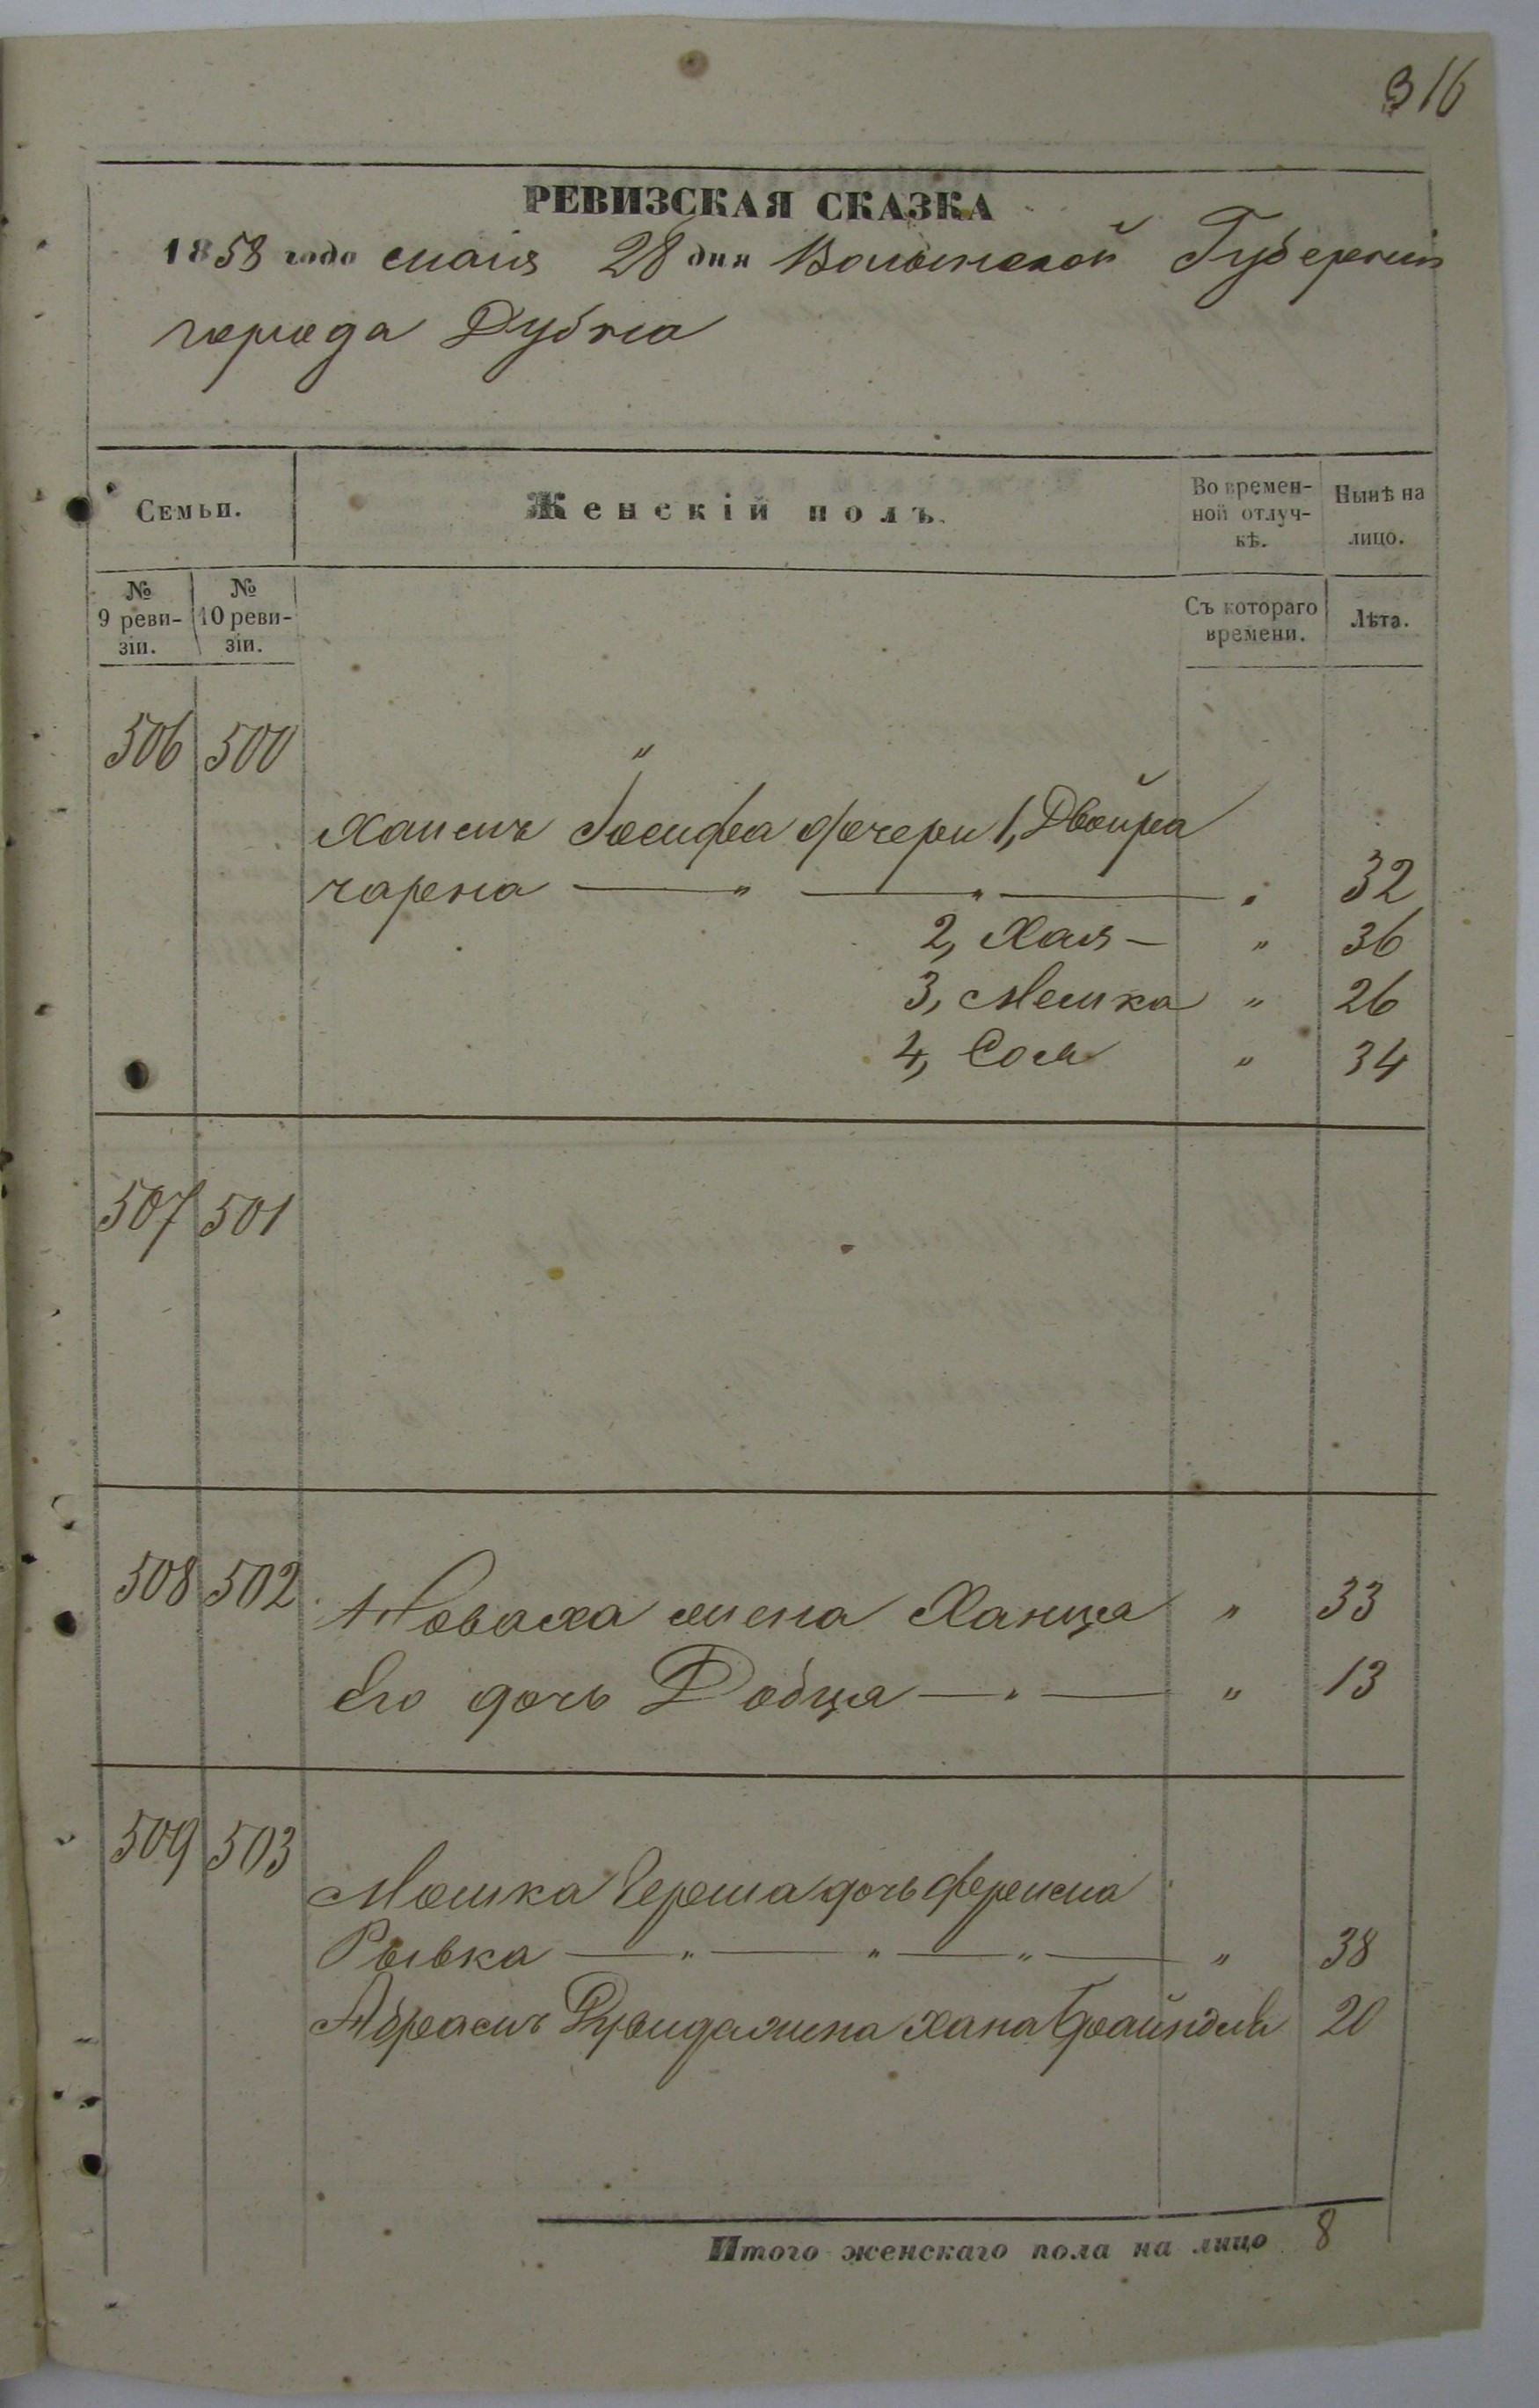 316
РЕВИЗСКАЯ СКАЗКА
1858 года маія 28 дня Волынской Губерніи
города Дубна
Семьи.
Женскій полъ.
Во времен-
ной отлуч-
кѣ.
Нынѣ на
лицо.
№
9 реви-
зіи.
№
10 реви-
зіи.
Съ котораго
времени.
Лѣта.
506 500 "
Хаимъ Іосифа дочери 1, Двойра
чарена — " — " — " 32
2, Хая — " 36
3, Мешка " 26
4, Сося " 34
507 501
508 502 Новаха жена Ханца " 33
Его дочь Добца — " — " 13
509 503
Мошка Герша дочь
Рывка — " — " — " — " 38
Абрамъ жена Хана Фрайндля 20
Итого женскаго пола на лицо 8